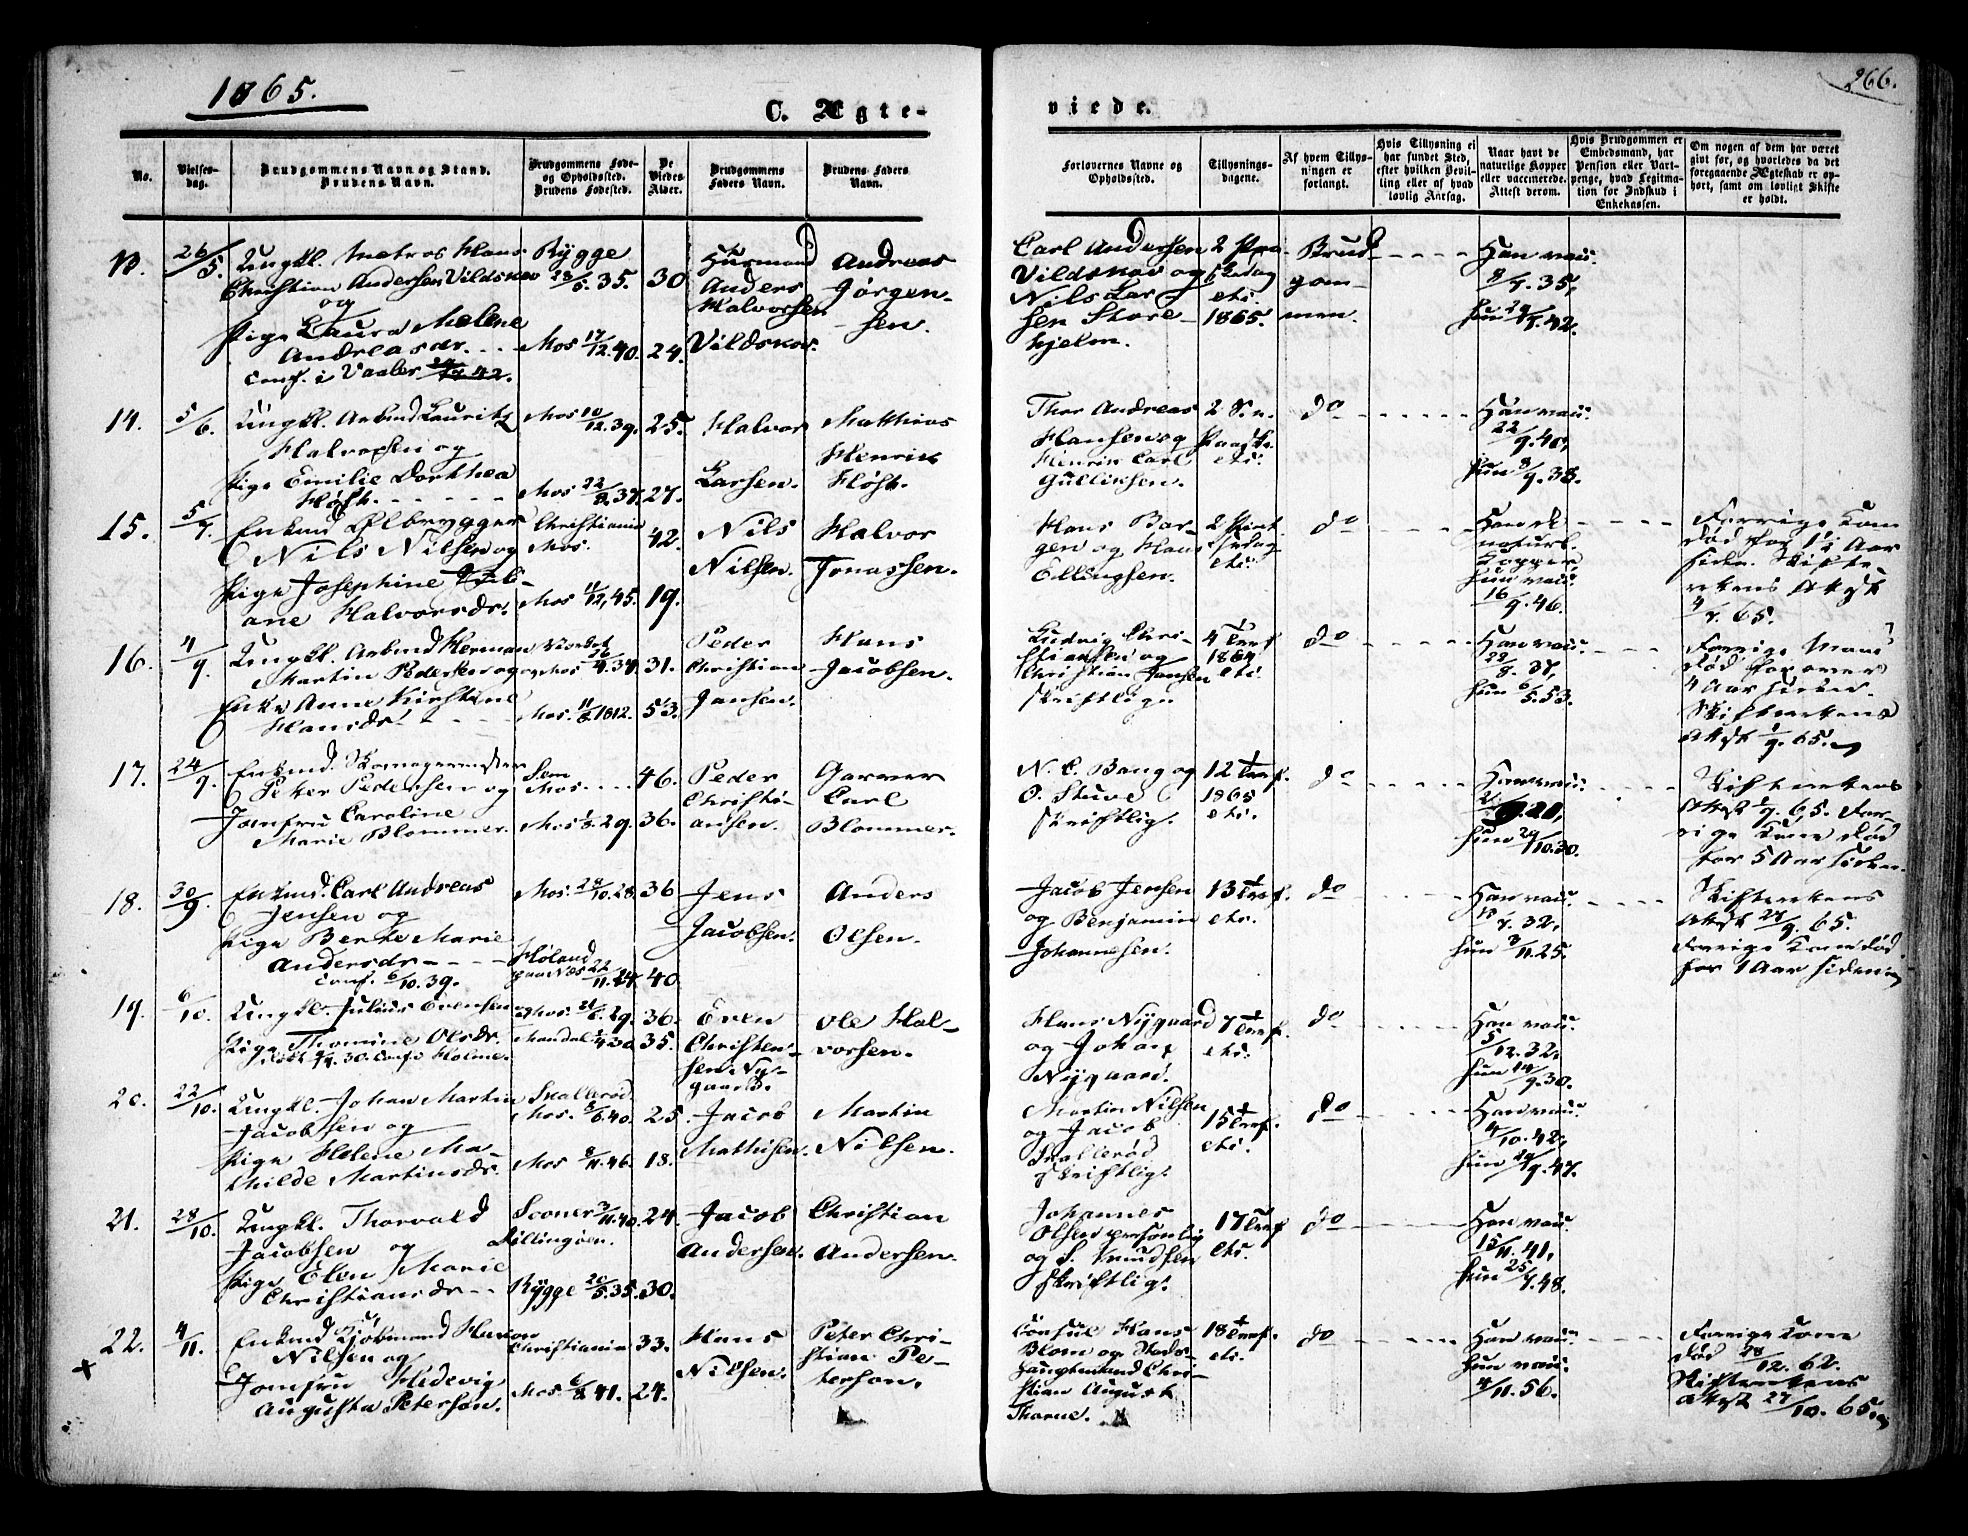 1865.
266.
C. Ægte-
viede.
No.
Vielses-
dag.
Brudgommens Navn og Stand.
Brudens Navn.
Brudgommens Føde-
og Opholdssted.
Brudens Fødested.
De
Viedes
Alder.
Brudgommens
Faders Navn.
Brudens Faders
Navn.
Forlovernes Navne og
Opholdssted.
Tillysnings-
dagene.
Af hvem Tillys-
ningen er
forlangt.
Hvis Tillysning ei
har fundet Sted,
efter hvilken Bevil-
ling eller af hvad
lovlig Aarsag.
Naar havt de
naturlige Kopper
eller vaccinerede.
Attest derom.
Hvis Brudgommen er
Embedsmand, har
Pension eller Vart-
penge, hvad Legitma-
tion for Indskud i
Enkekassen.
Om nogen af dem har været
givt før, og hvorledes da det
foregaaende Ægteskab er op-
hørt, samt om lovligt Skifte
er holdt.
13.
26/5
Ungkl. Matros Hans
Christian Andersen Vildskov
og
Pige Laura Melene
Andreasdr.
conf. i Vaaler
Rygge
28/5.35.
Mos 17/12.40.
30
24.
Huusmand
Anders
Halvorsen
Vildskov.
Andreas
Jørgen-
sen.
Carl Andersen
Vildskov og
Nils Lar-
sen Store-
hjelm.
1865.
Brud-
gom-
men.
Han vacc.
8/7.35,
hun
14.
5/6.
Ungkl. Arbmd Lauritz
Halvorsen og
Pige Emilie Dorthea
Høst.
Mos 10/12.39.
Mos 22/8.37.
25.
27.
Halvor
Larsen.
Matthias
Henrik
Høst.
Thor Andreas
Hansen og
Henrik Carl
Gulliksen.
do
Han vacc.
22/9.40,
hun 8/9.38.
15.
5/7.
Enkmd Ølbrygger
Nils Nilsen og
Pige Josephine
ane Halvorsdr.
Christiania
Mos.
Mos 11/12.45.
42.
19.
Nils
Nilsen.
Halvor
Jonassen.
Hans Bor-
gen og Hans
Ellingsen.
do
Han de
naturl.
Kopper
hun vacc.
16/9.46.
Forrige Kon
død for 1½ Aar
siden. Skifte-
rettens Attest
4/7. 65.
16.
4/9.
Ungkl. Arbmd Herman
Martin Pedersen og
Enke Anne Kirstine
Hansdr.
Mos. 11/8.1812.
31.
53.
Peder
Christian
Jansen.
Hans
Jacobsen.
Ludvig Chri-
stiansen og
Christian Jansen
skriftlig.
1864
do
Han vacc.
hun 6/5.53.
Forrige Mand
død for over
4 Aar siden.
Skifterettens
Attest 1/9.65.
17.
24/9.
Enkmd. Skomagermester
Peter Pedersen og
Jomfru Caroline
Marie Blommer.
Sem
Mos
Mos 1/8.29.
46.
36.
Peder
Christi-
ansen.
Garver
Carl
Blommer.
N. C. Bang og
O. Stuve
skriftlig.
12 Tref.
1865
do
Han vacc.
hun 29/10.30.
Skifterettens
Attest 1/9.65. For-
rige Kone død
for 5 Aar siden.
18.
30/9.
Enkmd. Carl Andreas
Jensen og
Pige Berte Marie
Andersdr.
conf. 6/10.39.
Mos. 28/10.28.
Høland
22/11.24.
36
40.
Jens
Jacobsen.
Anders
Olsen.
Jacob Jensen
og Benjamin
Johannesen.
13 Tref.
do
Han vacc.
hun 3/11.25.
Skifterettens
Attest 28/9. 65.
Forrige Kone død
for 1 Aar siden
19.
6/10.
Ungkl. Julius Evensen og
Pige Thomine Olsdr.
Mos. 21/6.29.
Mandal
36.
35.
Even
Christen-
sen Ny-
gaard.
Ole Hal-
vorsen.
Hans Nygaard
og Johan
Nygaard.
7 Tref.
do
Han vacc.
5/12.32,
hun 14/9.30.
20.
22/10.
Ungkl. Johan Martin
Jacobsen og
Pige Helene Ma-
thilde Martinsdr.
Skallerød
Mos. 5/6.40.
Mos 8/11.46.
25.
18.
Jacob
Mathisen.
Martin
Nilsen.
Martin Nilsen
og Jacob
Skallerød
skriftlig.
15 Tref.
do
Han vacc.
4/10.42,
hun 29/9.47.
21.
28/10.
Ungkl. Thorvald
Jacobsen og
Pige Elen Marie
Christiansdr.
Dillingøen.
Rygge 20/5.35.
24.
30.
Jacob
Andersen.
Christian
Andersen.
Johannes
Olsen personlig
og S. Knudsen
skriftlig.
17 Tref
do
Han vacc.
15/11.41,
hun 25/7.48.
22.
4/11.
Enkmd Kjøbmand
Nilsen og
Jomfru Hedevig
Augusta Peterson.
Christiania
Mos. 6/8.41.
33.
24.
Hans
Nilsen.
Peter Chri-
stian Pe-
terson.
Consul Hans
Blom og Stads-
hauptmand Chri-
stian August
Thorne.
18 Tref.
do
Han vacc.
hun vacc.
4/11.56.
Forrige Kone
død 28/12. 62.
Skifterettens
Attest 27/10. 65.